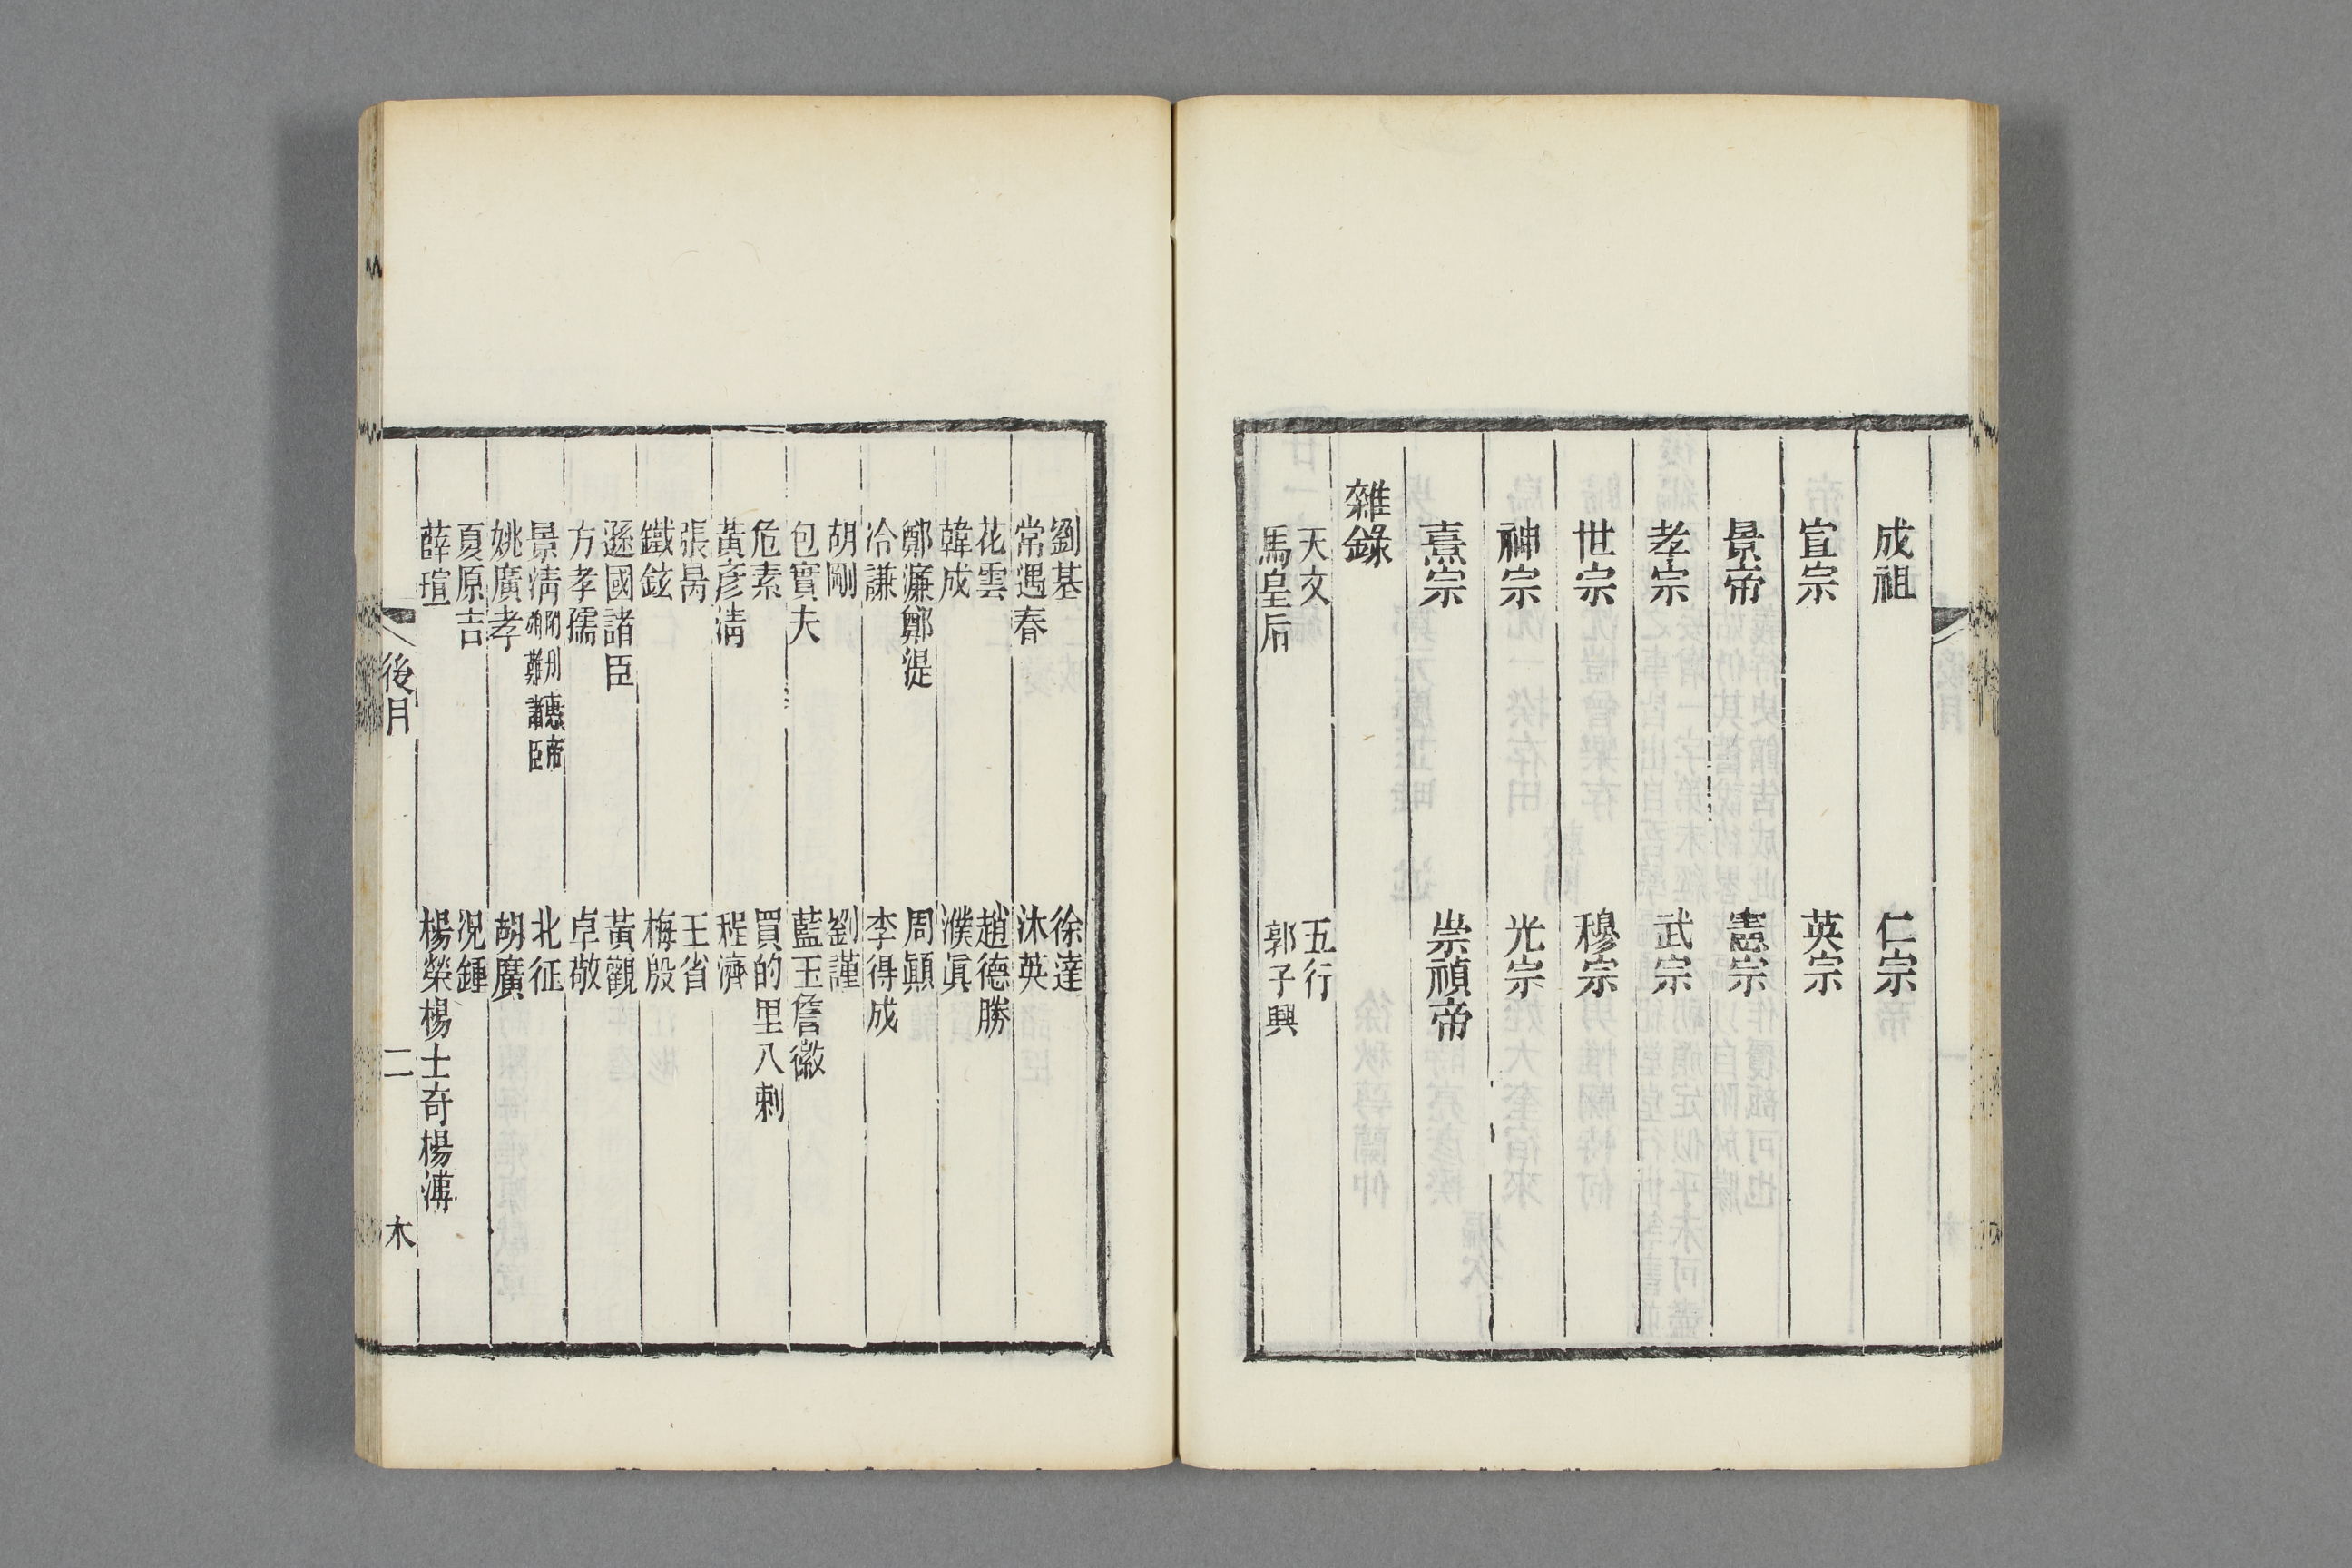 成祖　仁宗
宣宗　英宗
景帝　憲宗
孝宗　武宗
世宗　穆宗
神宗　光宗
熹宗　崇禎帝
雜錄
天文　五行
馬皇后　郭子興
劉基　徐達
常遇春　沐英
花雲　趙德勝
韓成　濮眞
鄭濂鄭湜　周顚
冷謙　李得成
胡剛　劉謹
包實夫　藍玉詹徽
危素　買的里八剌
黃彥淸　程濟
張昺　王省
鐵鉉　梅殷
遜國諸臣　黃觀
方孝孺　卓敬
景淸附別惠帝殉難諸臣　北征
姚廣孝　胡廣
夏原吉　況鍾
薛瑄　楊榮楊士奇楊溥
後月　二　木